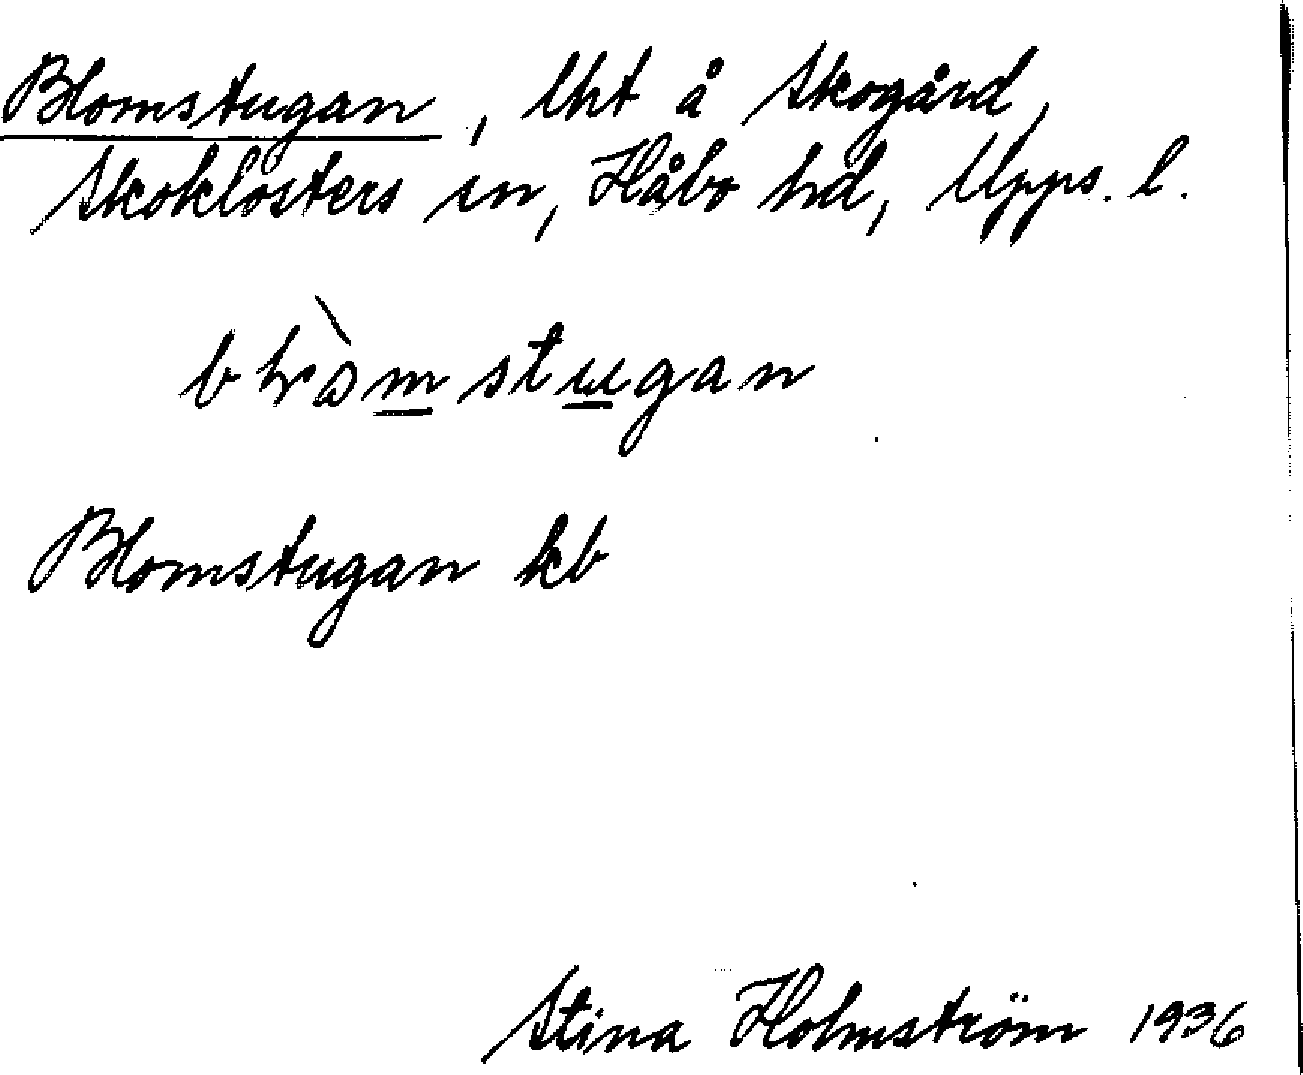 Blomstugan, lht å Skogård,
Skoklosters sn, Håbo hd, Upps. l.
stugan
Blomstugan kb
Stina Holmström 1936